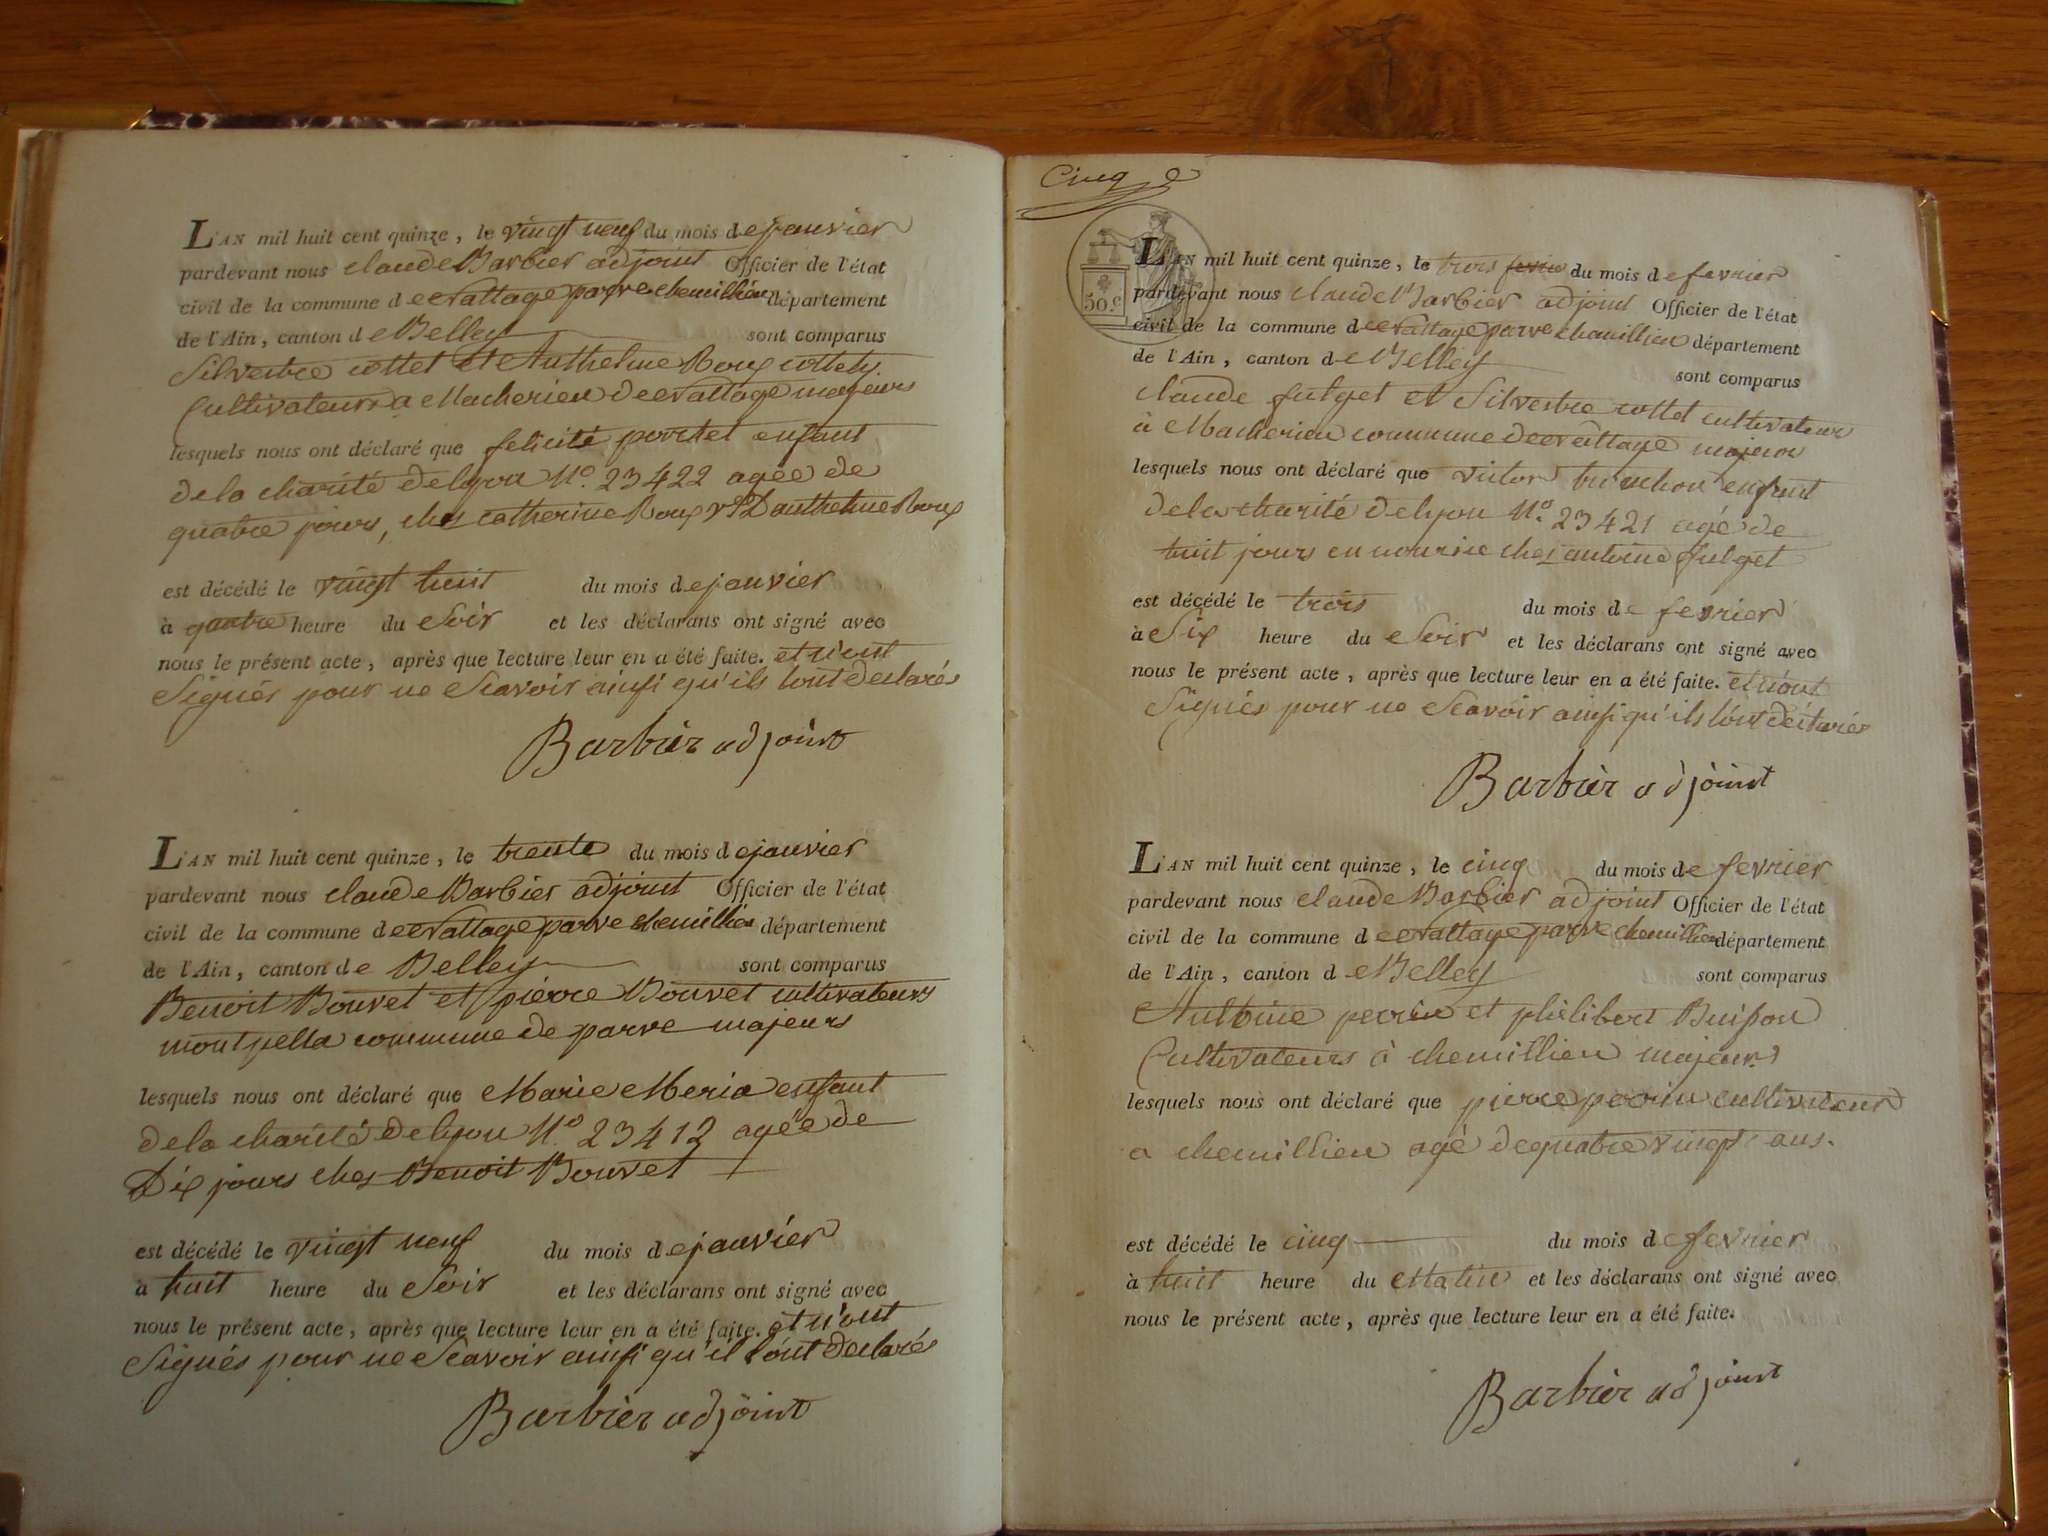 L'AN mil huit cent quinze, le vingt neuf du mois de janvier
pardevant nous claude Barbier adjoint Officier de l'état
civil de la commune de cravattage parve chemillieu département
de l'Ain, canton de Belley sont comparus
Silvestre cottet et Anthelme Roux
Cultivateurs a Macherieu majeurs
lesquels nous ont déclaré que felicité enfant
de la charité de lyon N.o 23422 agée de
quatre jours, ches catherine Roux d'anthelme Roux
est décédé le vingt huit du mois de janvier
à quatre heure du Soir et les déclarans ont signé avec
nous le présent acte, après que lecture leur en a été faite. et n'ont
Signés pour ne Scavoir ainsi qu'ils lont declarés
Barbier adjoint
L'AN mil huit cent quinze, le trente du mois de janvier
pardevant nous claude Barbier adjoint Officier de l'état
civil de la commune de cravattage parve chemillieu département
de l'Ain, canton de Belley sont comparus
Benoit Bouvet et pierre Bouvet cultivateurs
montpella commune de parve majeurs
lesquels nous ont déclaré que Marie Meria enfant
de la charité de lyon N.o 23412 agée de
Dix jours ches Benoit Bouvet
est décédé le vingt neuf du mois de janvier
à huit heure du Soir et les déclarans ont signé avec
nous le présent acte, après que lecture leur en a été faite. et n'ont
Signés pour ne Scavoir ainsi qu'il lont declarés
Barbier adjoint
Cinq
50.c
L'AN mil huit cent quinze, le trois du mois de fevrier
pardevant nous claude Barbier adjoint Officier de l'état
civil de la commune de cravattage parve chemillieu département
de l'Ain, canton de Belley
sont comparus
claude fulget et Silvestre cottet cultivateurs
à Macherieu commune de cravattage majeurs
lesquels nous ont déclaré que victor enfant
de la charité de lyon N.o 23421 agé de
huit jours en nourice chez antoine fulget
est décédé le trois du mois de fevrier
à Six heure du Soir et les déclarans ont signé avec
nous le présent acte, après que lecture leur en a été faite. et n'ont
Signés pour ne Scavoir ainsi qu'ils l'ont déclarés
Barbier adjoint
L'AN mil huit cent quinze, le cinq du mois de fevrier
pardevant nous claude Barbier adjoint Officier de l'état
civil de la commune de cravattage parve chemillieu département
de l'Ain, canton de Belley sont comparus
perrin et philibert Buisson
Cultivateurs à chemillieu majeurs
lesquels nous ont déclaré que pierre perrin cultivateur
a chemillieu agé de quatre vingt ans.
est décédé le cinq du mois de fevrier
à huit heure du Matin et les déclarans ont signé avec
nous le présent acte, après que lecture leur en a été faite.
Barbier adjoint